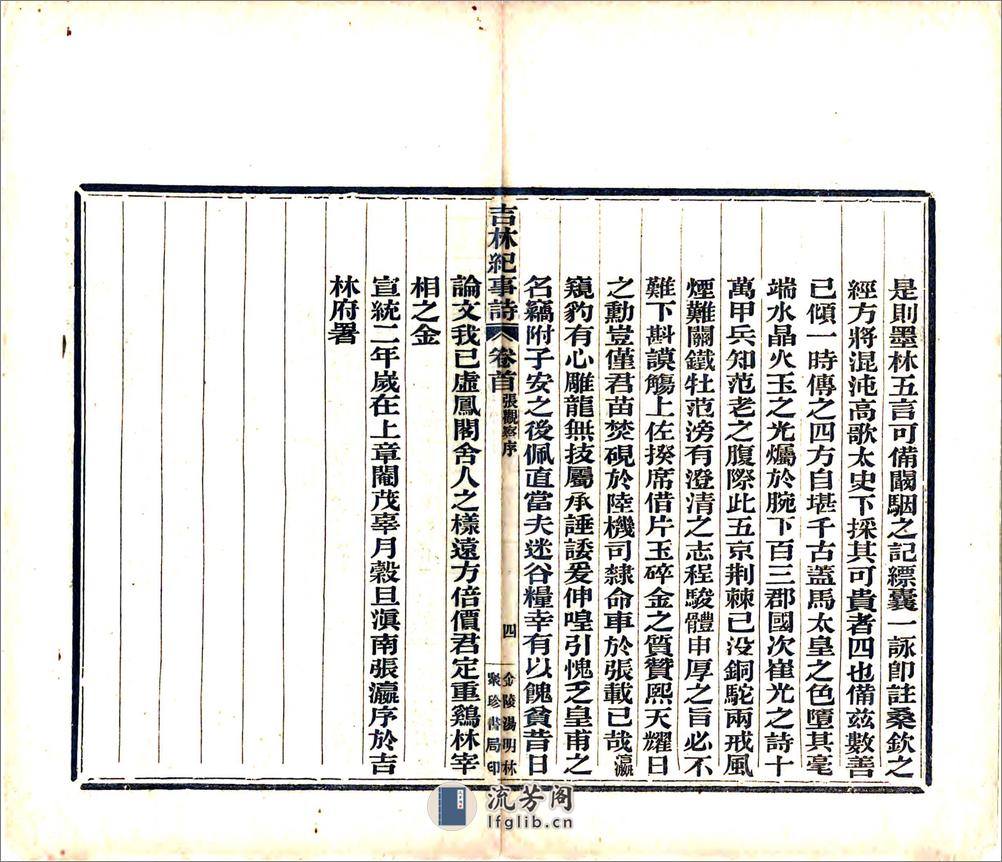 是則墨林五言可備闞駰之記縹囊一詠卽註桑欽之
經方將混沌高歌太史下採其可貴者四也備兹數善
已傾一時傳之四方自堪千古蓋馬太皇之色墮其毫
端水晶火玉之光爥於腕下百三郡國次崔光之詩十
萬甲兵知范老之腹際此五京荆棘已没銅駝兩戒風
煙難關鐵牡范滂有澄清之志程駿體申厚之旨必不
難下斟謨觴上佐揆席借片玉碎金之質贊熙天耀日
之勳豈僅君苗焚硯於陸機司隸命車於張載已哉瀛
窺豹有心雕龍無技屬承諈諉爰伸喤引愧乏皇甫之
名竊附子安之後佩直當夫迷谷糧幸有以餽貧昔日
論文我已虛鳳閣舍人之樣遠方倍價君定重鷄林宰
相之金
宣統二年歲在上章閹茂辜月穀旦滇南張瀛序於吉
林府署
吉林紀事詩 卷首 張觀察序 四 金陵湯明林聚珍書局印
流芳阁
lfglib.cn